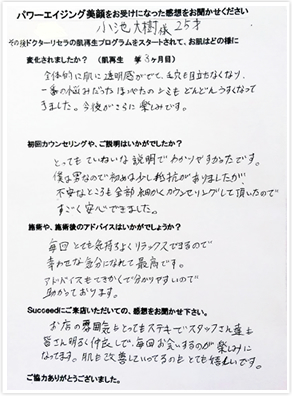 パワーエイジング美顔をお受けになった感想をお聞かせください
小池大樹様 25才
その後ドクターリセラの肌再生プログラムをスタートされて、お肌はどの様に
変化されましたか？（肌再生 約3ヶ月目）
全体的に肌に透明感がでて、毛穴も目立たなくなり、
一番の悩みだったほっぺたのシミもどんどんうすくなって
きました。今後がさらに楽しみです。
初回カウンセリングや、ご説明はいかがでしたか？
とってもていねいな説明でわかりやすかったです。
僕は男なので初めは少し抵抗がありましたが
不安なところも全部細かくカウンセリングして頂いたので
すごく安心できました。
施術や、施術後のアドバイスはいかがでしょうか？
毎回とても気持ちよくリラックスできるので
幸わせな気分になれて最高です。
アドバイスもてきかくで分かりやすいので
助かっております。
Succeedにご来店いただいての、感想をお聞かせ下さい。
お店の雰囲気もとってもステキでスタッフさん達も
皆さん明るく仲良しで、毎回お会いするのが楽しみに
なってます。肌も改善していってるのもとても嬉しいです。
ご協力ありがとうございました。